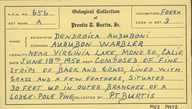 No. 656 Oological Collection of FORMER No.
A Prentis T. Curtis, Jr. 3
DENDROICA AUDUBONI
AUDUBON WARBLER
NEAR VIRGINIA LAKE, MONO CO., CALIF
JUNE 18TH 1950 NEST COMPOSED OF FINE
STRIPS OF BARK AND GRASS, LINED WITH
GRASS AND A FEW FEATHERS, SITUATED
30 FEET UP IN OUTER BRANCHES OF A
LODGE POLE PINE P.T. CURTIS